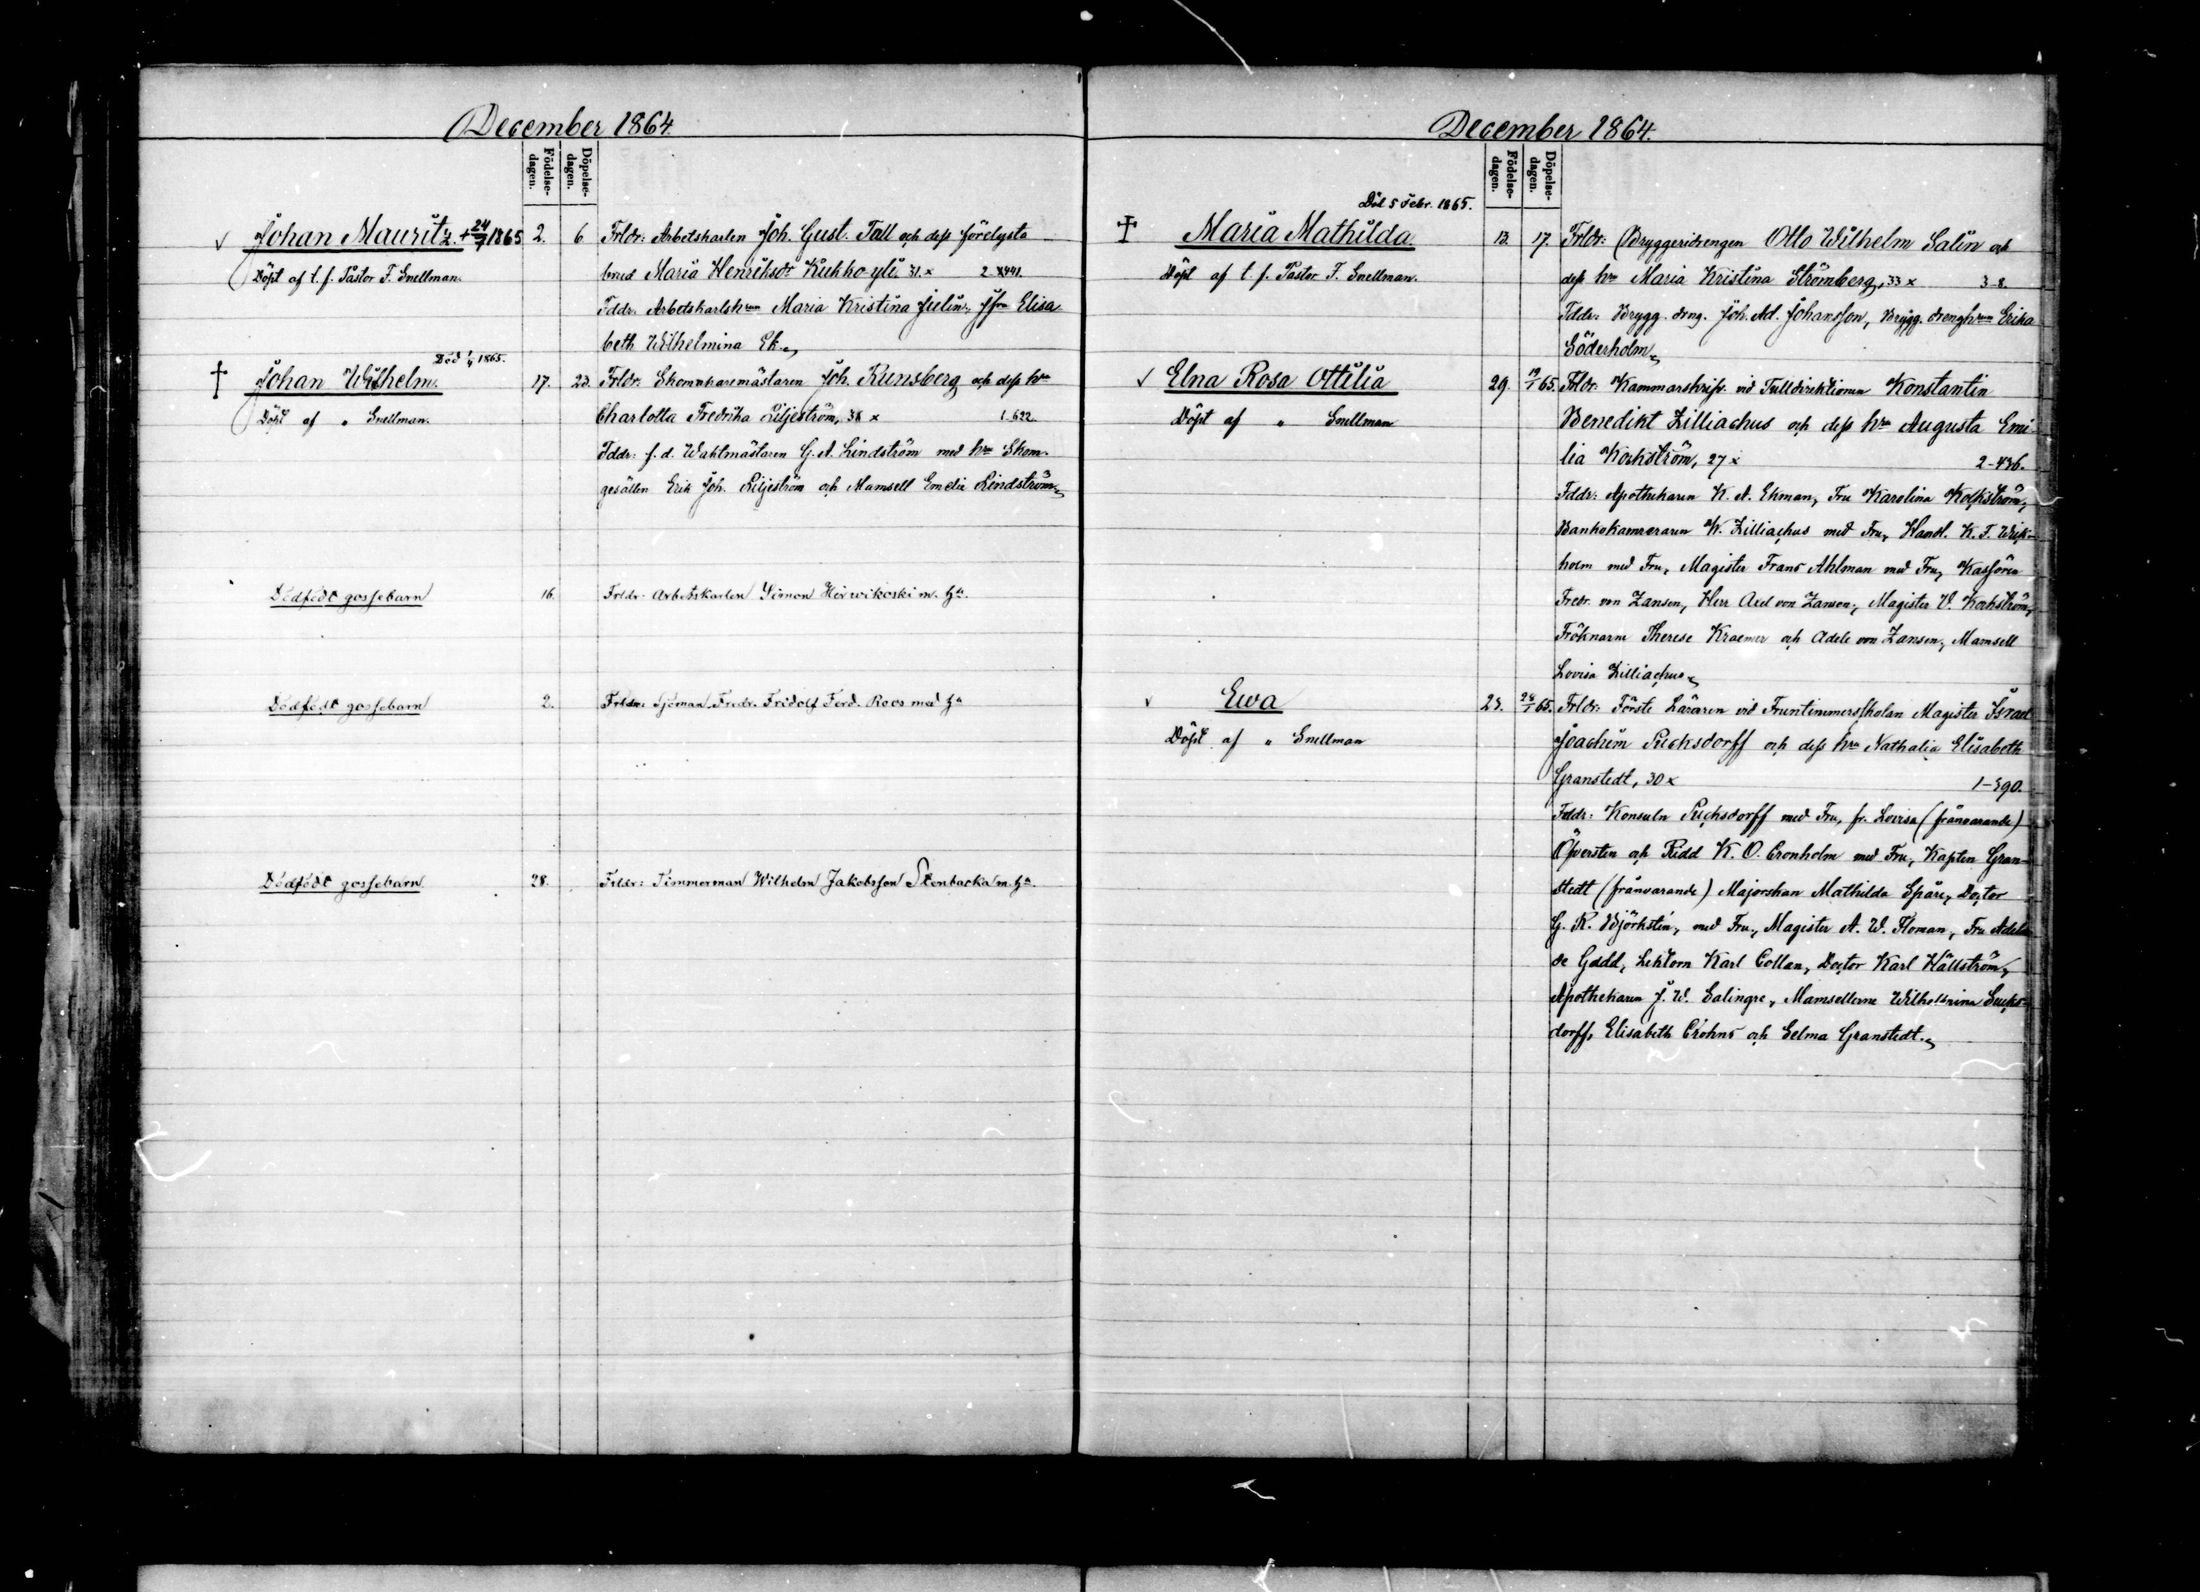 December 1864.
Födelse-
dagen.
Döpelse-
dagen.
Johan Mauritz. + 24/7 1865 2. 6 Frldr: Arbetskarlen Joh. Gust. Tall och dess förelysta
Döpt af t. f. Pastor F. Snellman. brud Maria Henriksdr Kukko yli. 31. x
Fddr. Arbetskarlshrun Maria Kristina Julin, Jfrn Elisa
beth Wilhelmina Ek.
Död 1865.
Johan Wilhelm. 17. 23. Frldr. Skomakaremästaren Joh. Kunsberg och dess hru
Döpt af " Snellman. Charlotta Fredrika Liljeström, 38 x 1-622.
Fddr: f. d. Wahlmästaren G. A. Lindström med hru Skom.
gesällen Erik Joh. Liljeström och Mamsell Emelie Lindström.
Dödfödt gossebarn 16. Frldr. Arbetskarlen Simon Hirwikoski m. Ha.
Dödfödt gossebarn 2. Frldr: Sjöman Fredr. Fridolf Ferd. Roos med Ha
Dödfödt gossebarn 28. Frldr: Timmerman Wilhelm Jakobsson Stenbacka m. Ha.
December 1864.
Födelse-
dagen.
Döpelse-
dagen.
Död 5 Febr. 1865.
Maria Mathilda 13. 17. Frldr: Bryggeridrengen Otto Wilhelm Salin och
Döpt af t. f. Pastor F. Snellman. dess hru Maria Kristina Strömberg, 33 x 3-8.
Fddr: Brygg. dreng. Joh. Ad. Johansson, Brygg. drenghrun Erika
Söderholm
Elna Rosa Ottilia 29. 19/1 65. Frldr: Kammarskrifv. vid Tulldirektionen Konstantin
Döpt af " Snellman Benedikt Zilliachus och dess hru Augusta Emi-
lia Kockström, 27 x 2-436.
Fddr: Apothekaren K. A. Ekman, Fru Karolina Kockström,
Bankokamreraren W. Zilliachus med Fru, Handl. K. F. Wek-
holm med Fru, Magister Frans Ahlman med Fru, Kassören
Fredr. von Zansen, Herr Axel von Zansen, Magister V. Kockström,
Fröknarne Therese Kraemer och Adele von Zansen, Mamsell
Lovisa Zilliachus
Ewa 23. 28/1 65. Frldr: Förste Läraren vid Fruntimmersskolan Magister Israel
Döpt af " Snellman Joachim Sucksdorff och dess hru Nathalia Elisabeth
Granstedt, 30 x 1-590.
Fddr: Konsuln Sucksdorff med Fru, fr. Lovisa (frånvarande)
Öfversten och Ridd K. O. Cronholm med Fru, Kapten Gran-
stedt (frånvarande) Majorskan Mathilda Spåre, Doctor
G. R. Björkstén, med Fru, Magister A. W. Floman, Fru Adelai
de Gadd, Lektorn Karl Collan, Doctor Karl Hällström,
Apothekaren J. W. Salingre, Mamsellerne Wilhelmina Sucks-
dorff, Elisabeth Crohns och Selma Granstedt.